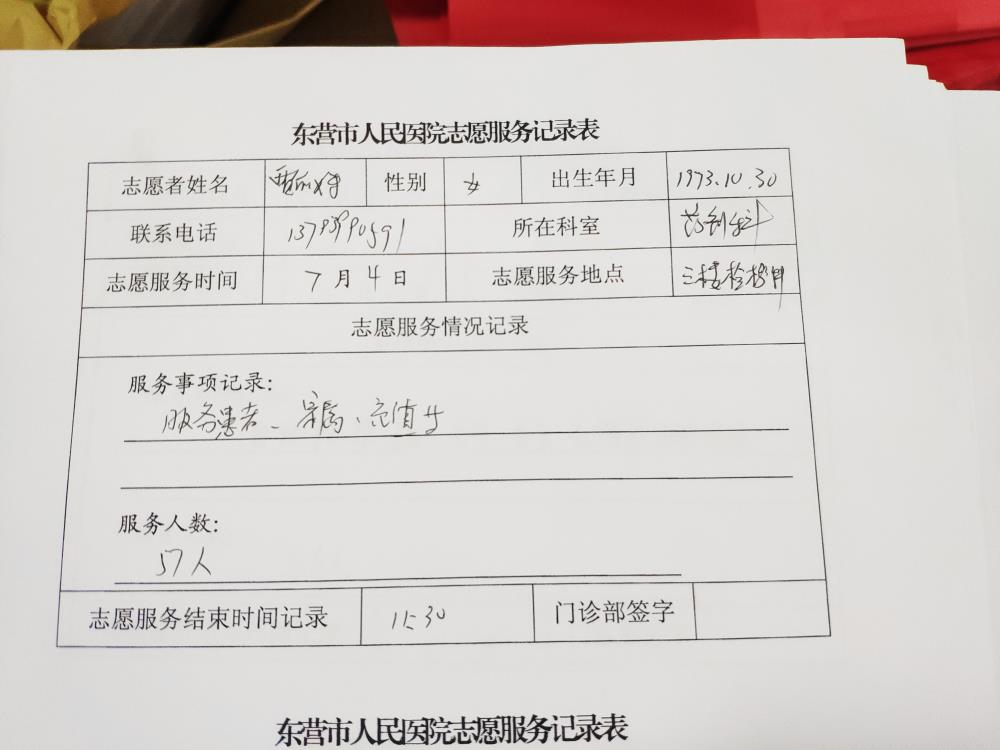 东营市人民医院志愿服务记录表
志愿者姓名 性别 女 出生年月 1973.10.30
联系电话 所在科室 药剂科
志愿服务时间 7月4日 志愿服务地点 三楼
志愿服务情况记录
服务事项记录:
服务患者、家属、
服务人数:
57人
志愿服务结束时间记录 11:30 门诊部签字
东营市人民医院志愿服务记录表